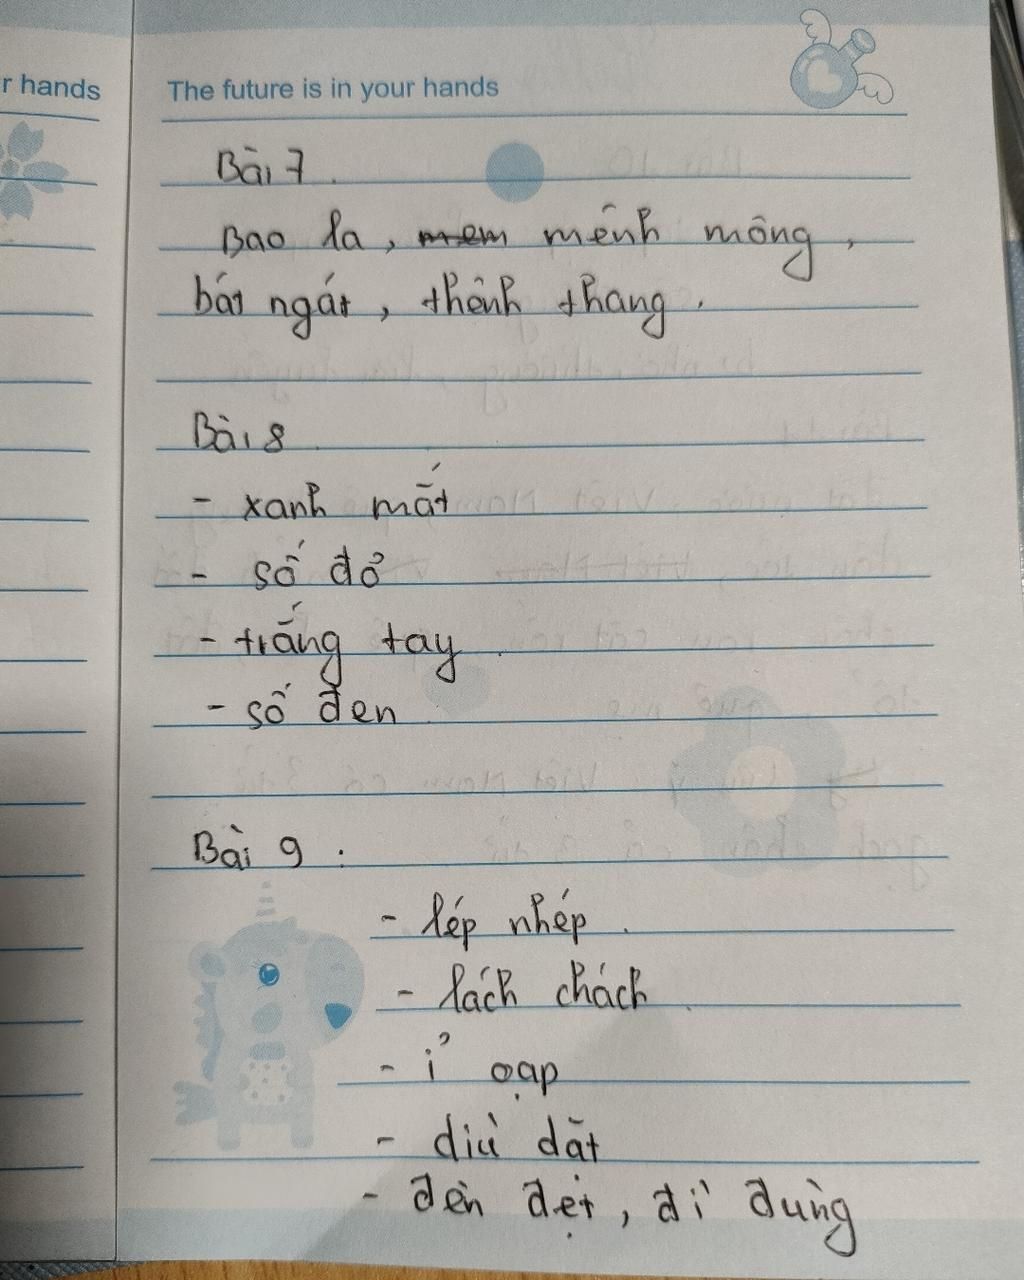 r hands
The future is in your hands
Bài 7.
Bao la, mem mênh mông,
bát ngát, thênh thang.
Bài 8
- xanh mắt
- số đỏ
- trắng tay.
- số đen
Bài 9 :
- lép nhép.
- lách chách.
- ỉ oạp
- dìu dắt
- đèn đẹt, đì đùng